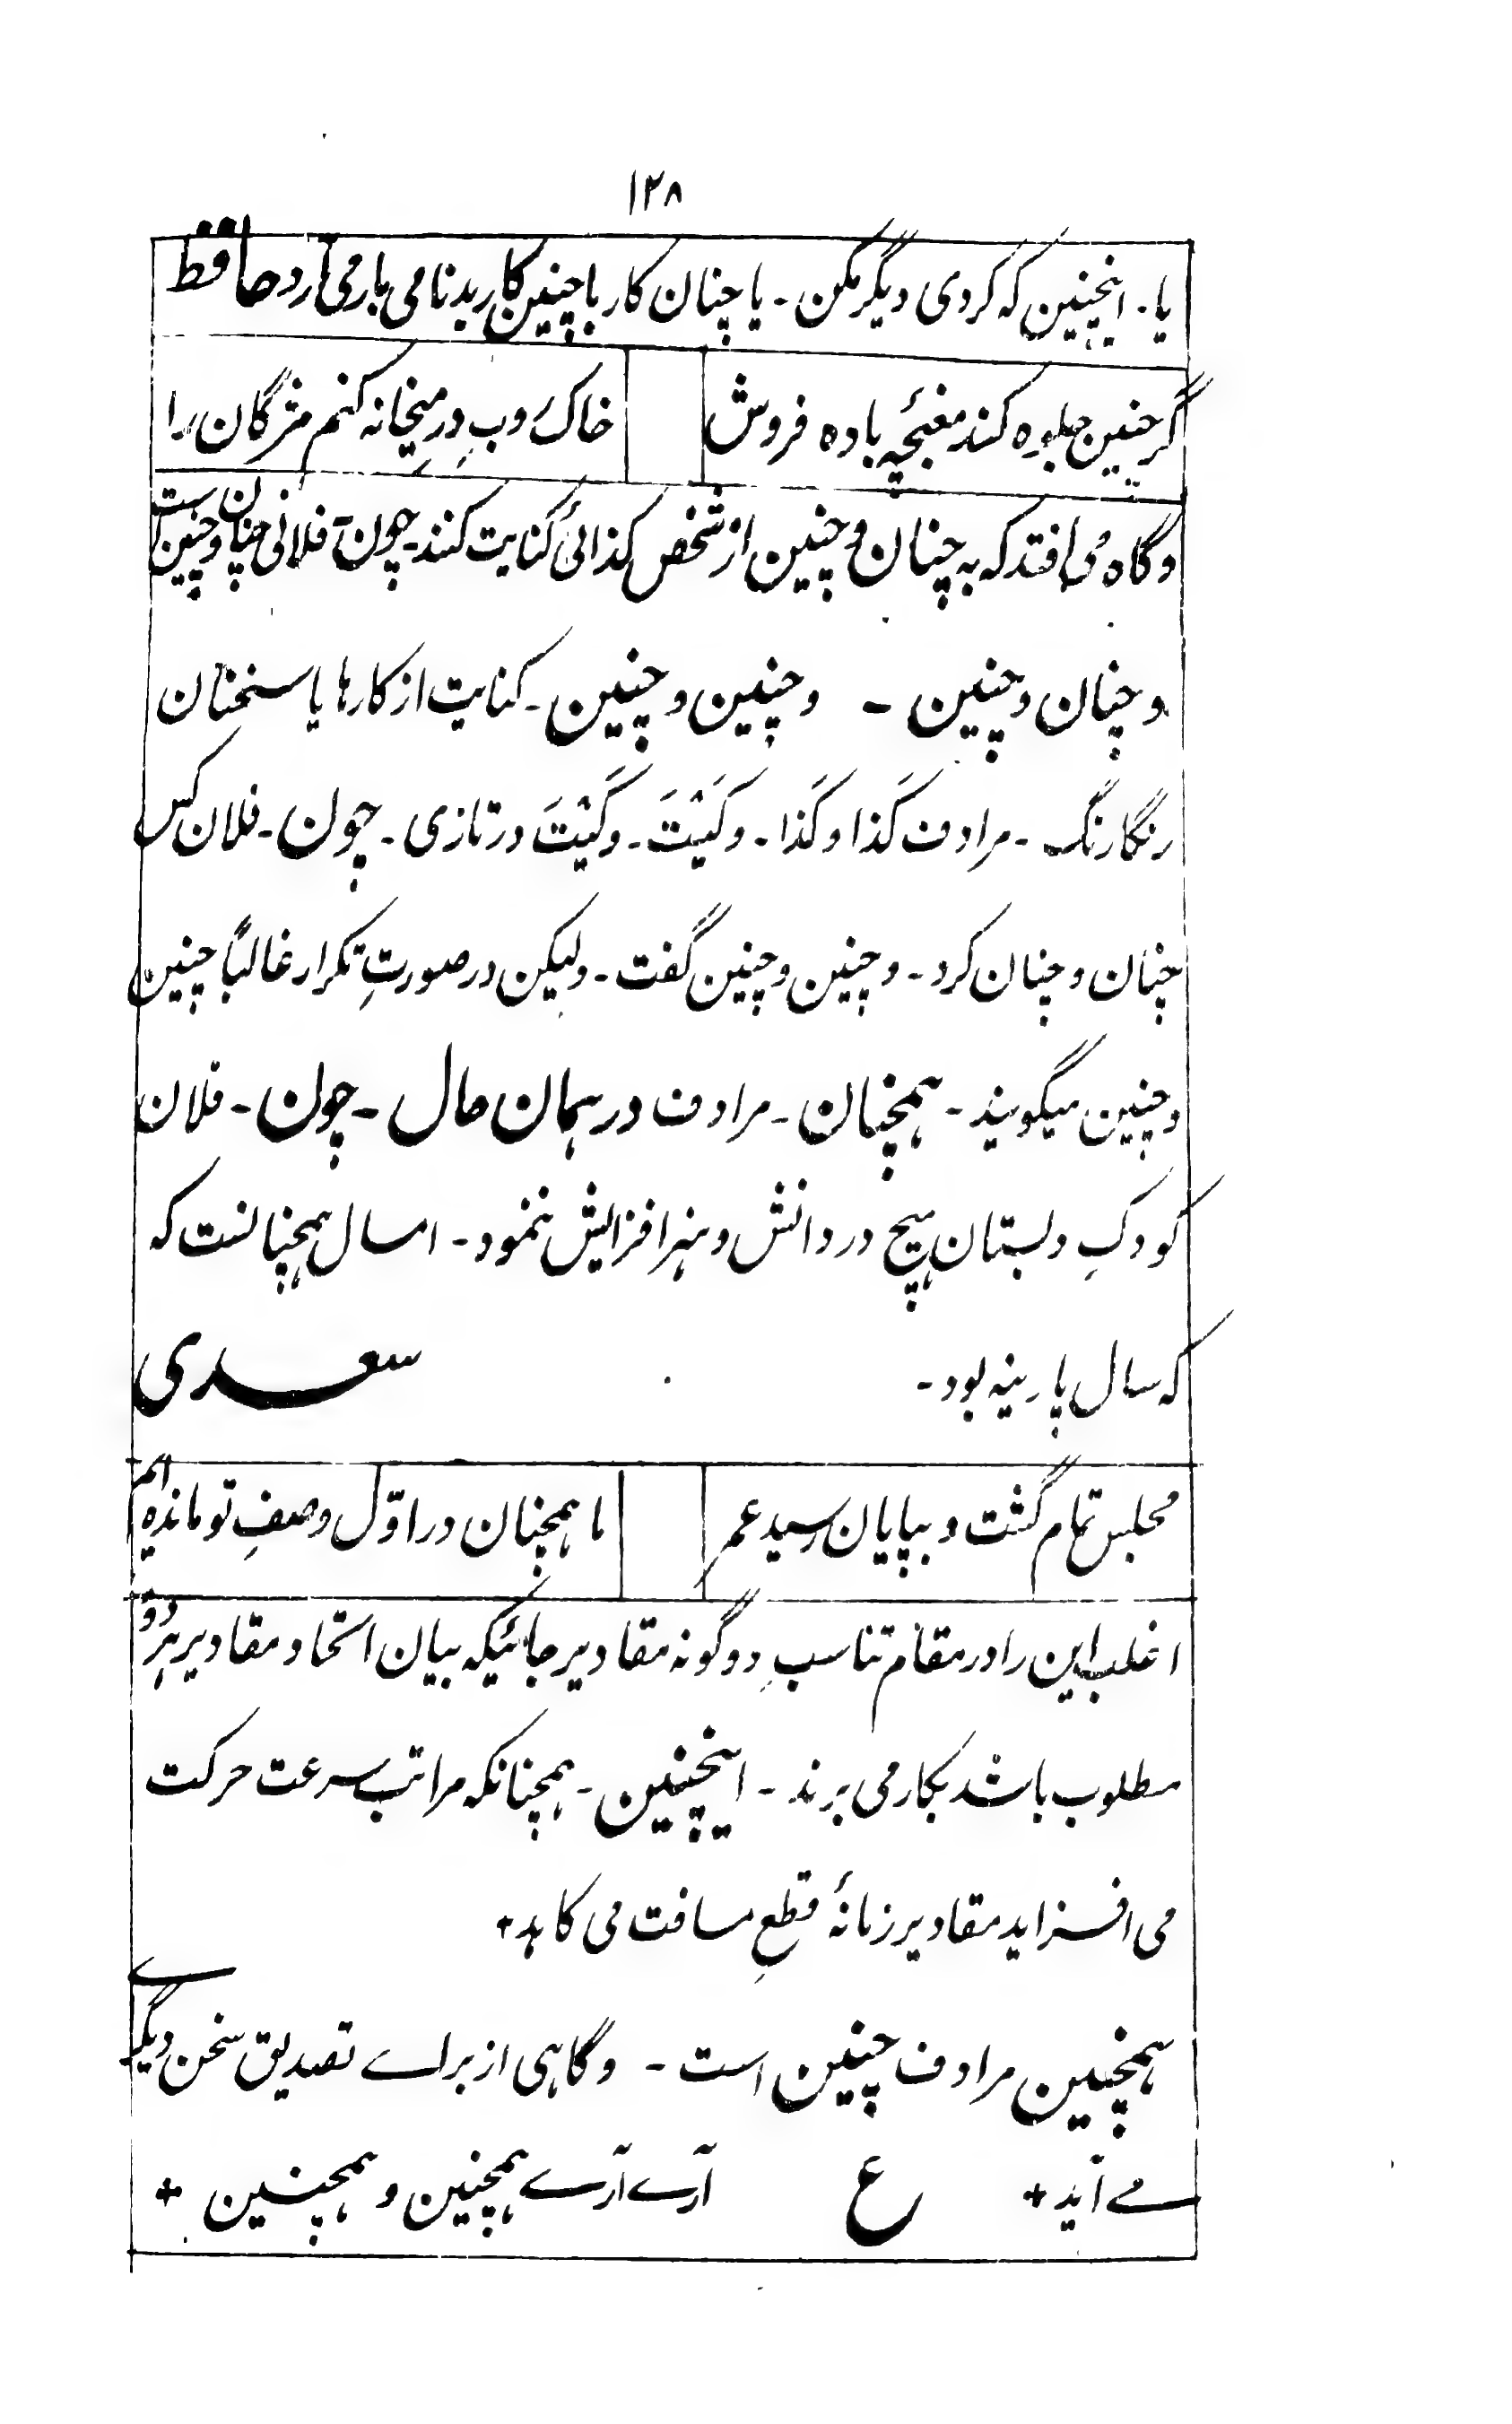 ۱۲۸
یا۔ اینچنین که کردی دیگر مکن۔ یا چنان کار با چنین کار بدنامی بار می آرد حافظ
گر چنین جلوه کند مغبچۂ باده فروش خاک روبِ درِ میخانه کنم مژگان را
و گاه می افتد که به چنان و چنین از شخص کذائی کنایت کنند۔ چون۔ فلانی چنان و چنین است
و چنان و چنین ۔ و چنین و چنین ۔ کنایت از کارها یا سخنان
رنگارنگ ۔ مرادف کَذا و کَذا ۔ و کَیْتَ ۔ و کَیْتَ در تازی ۔ چون ۔ فلان کس
چنان و چنان کرد ۔ و چنین و چنین گفت ۔ ولیکن در صورتِ تکرار غالباً چنین
و چنین میگویند ۔ همچنان ۔ مرادف در همان حال ۔ چون ۔ فلان
کودکِ دبستان هیچ در دانش و هنر افزایش ننمود ۔ امسال همچنانست که
که سال پارینه بود ۔ سعدی
مجلس تمام گشت و بپایان رسید عمر ما همچنان در اوّل وصفِ تو مانده ایم
اغلب این را در مقام تناسبِ دو گونه مقادیر جائیکه بیان اتحاد مقادیر هر دو
مطلوب باشد بکار می برند ۔ اینچنین ۔ همچنانکه مراتب سرعت حرکت
می افزاید مقادیر زمانۂ قطعِ مسافت می کاهد +
همچنین مرادف چنین است ۔ و گاهی از برای تصدیق سخن دیگرے
مے آید + ع آرے آرے همچنین و همچنین +